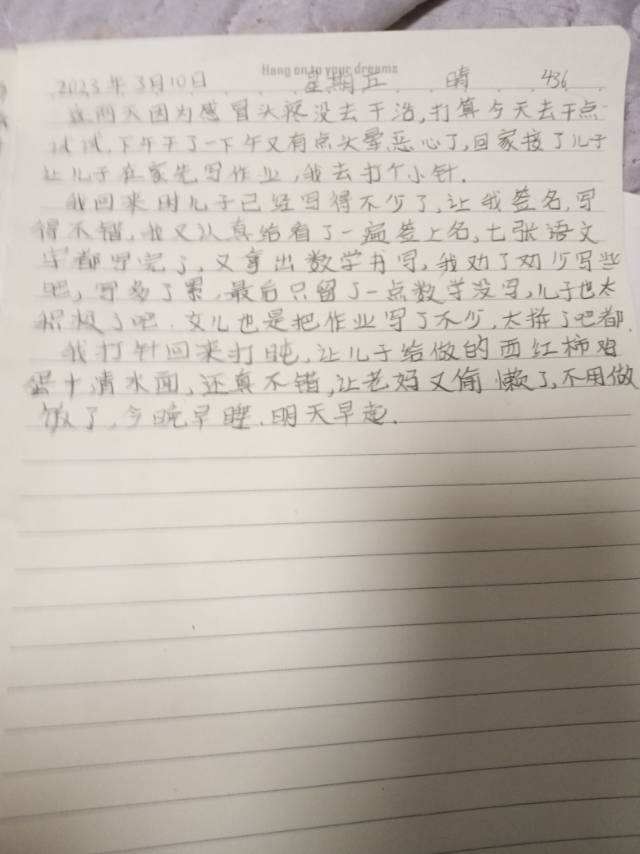 Hang on to your dreams
2023年3月10日 星期五 晴 436
这两天因为感冒头疼没去干活,打算今天去干点
试试,下午干了一下午又有点头晕恶心了,回家接了儿子
让儿子在家先写作业,我去打个小针.
我回来时儿子已经写得不少了,让我签名,写
得不错,我又认真给看了一遍签上名,七张语文
字都写完了,又拿出数学书写,我劝了劝少写些
吧,写多了累,最后只留了一点数学没写,儿子也太
积极了吧.女儿也是把作业写了不少,太拼了吧都.
我打针回来打盹,让儿子给做的西红柿鸡
蛋+清水面,还真不错,让老妈又偷懒了,不用做
饭了,今晚早睡.明天早起.